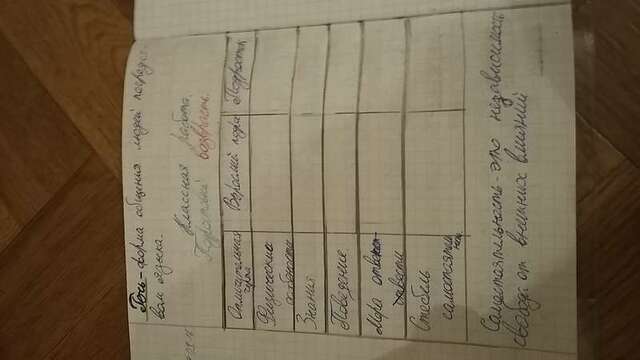 Речь - форма общения людей посредст-
вом языка.
Классная работа
Подростковый возврасть.
Отличительная черта
Взрослый
Подросток
Физические
особености
Знания
Поведение
Мера ответст-
твести
Стебель
самостоятель
ность
Самостоятельность - это независимость
свобода от внешних влияний